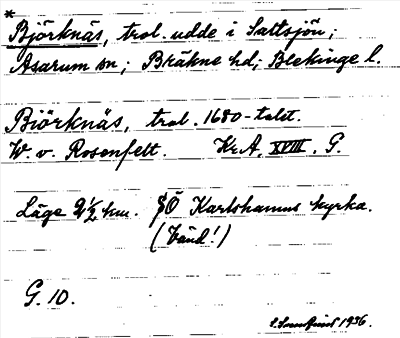 * Björknäs, trol. udde i Saltsjön;
Asarum sn; Bräkne hd; Blekinge l.
Biörknäs, trol. 1680-talet.
W. v. Rosenfelt. Kr. A. XVIII. G.
Läge 2½ km. SÖ Karlshamns kyrka.
(Vänd!)
G. 10.
1936.